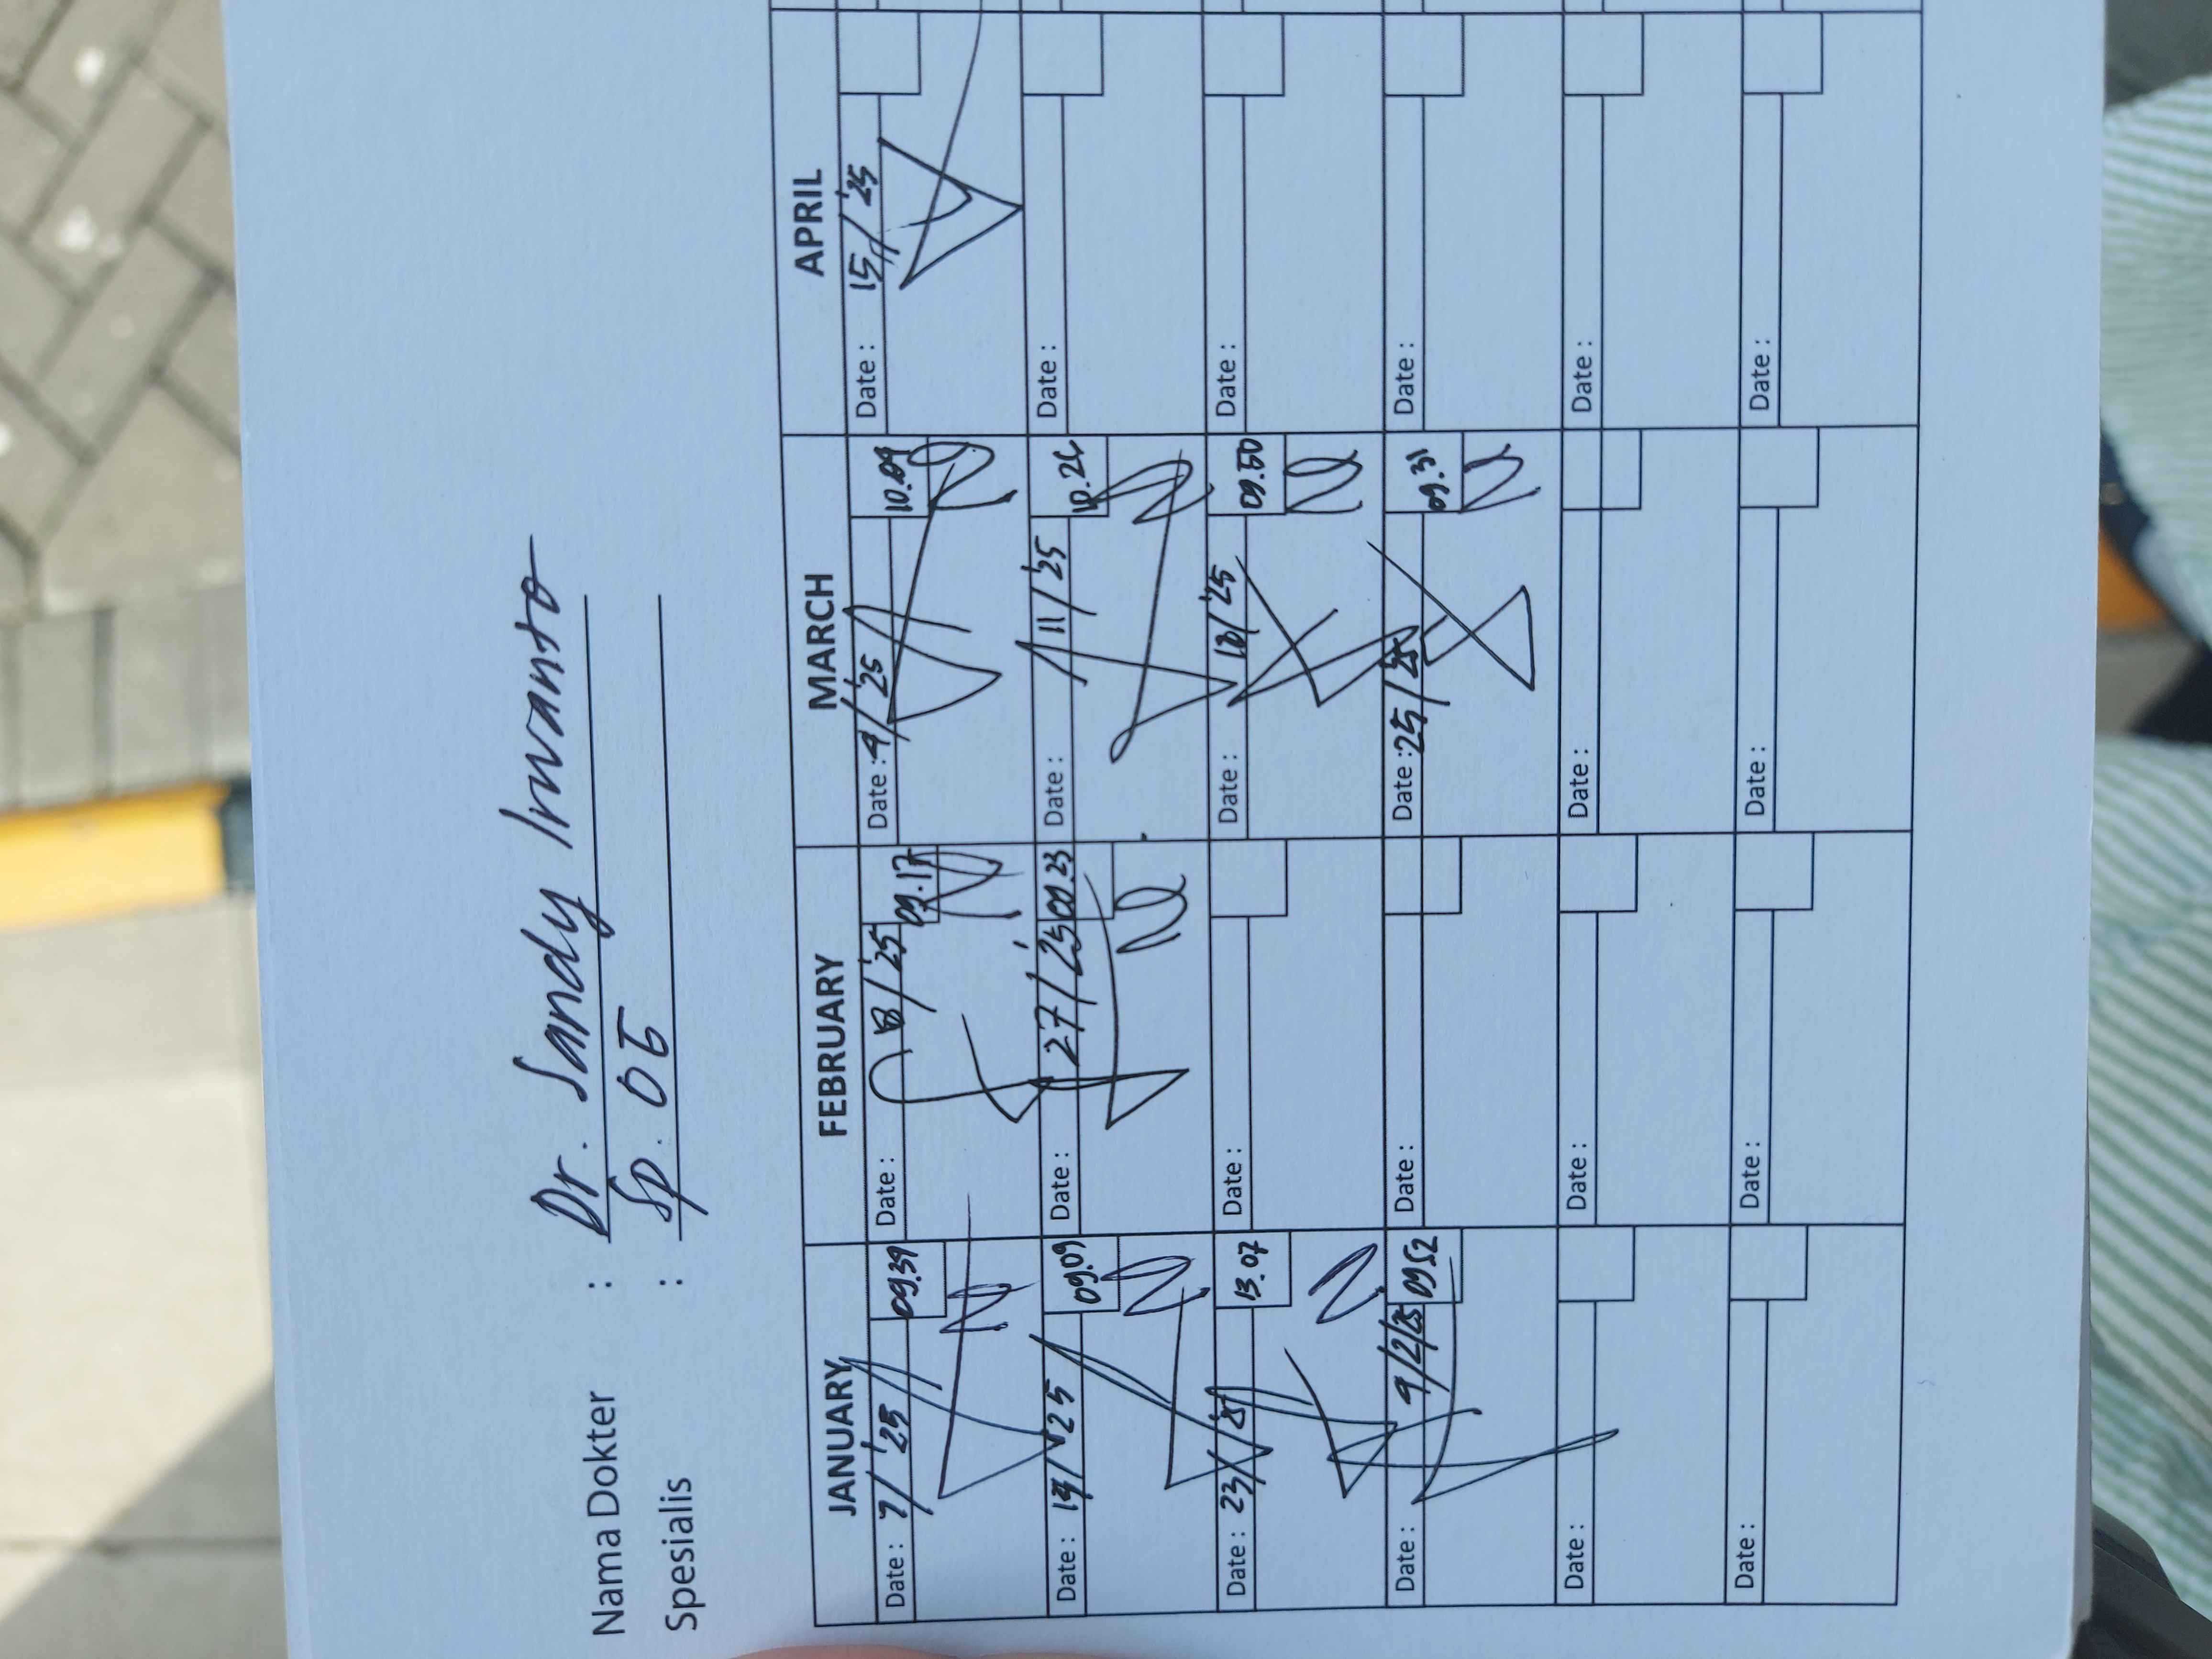 Nama Dokter : Dr. Sandy Irwanto
Spesialis : Sp. OG
JANUARY FEBRUARY MARCH APRIL
Date : 7/'25 09.39 Date : 8/'25 09.17 Date : 4/'25 10.09 Date : 15/'25
Date : 14/'25 09.09 Date : 27/'25 09.23 Date : 11/'25 10.26 Date :
Date : 23/'25 13.07 Date : Date : 18/'25 09.50 Date :
Date : 4/2/25 09.52 Date : Date : 25/'25 09.31 Date :
Date : Date : Date : Date :
Date : Date : Date : Date :